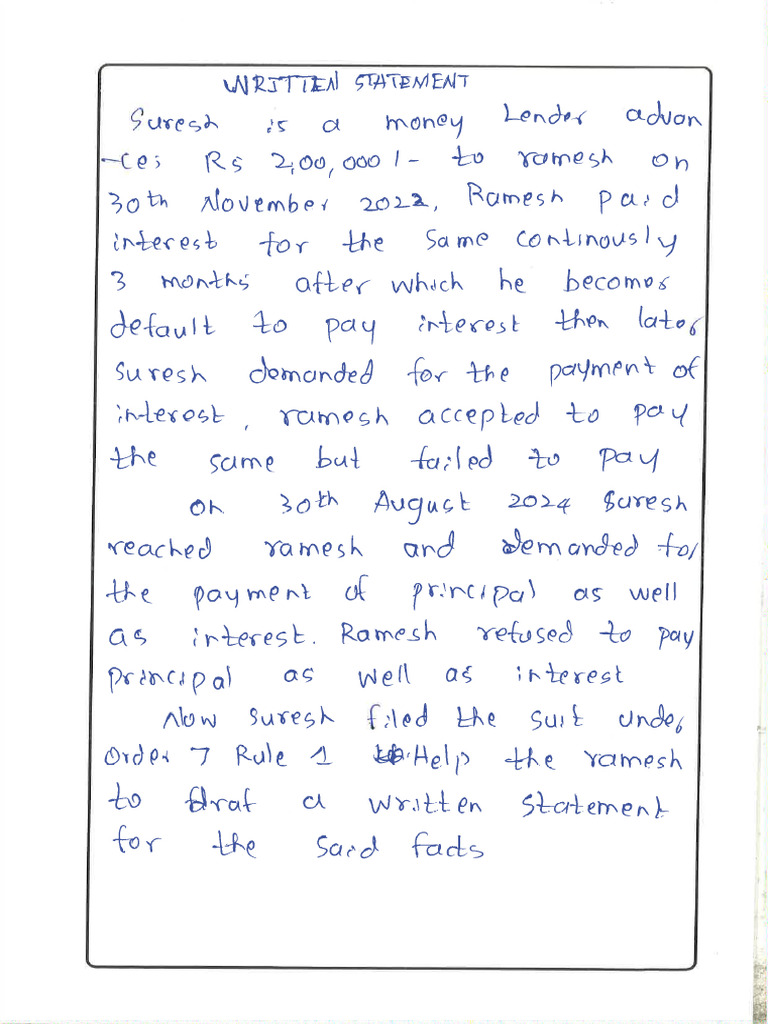 WRITTEN STATEMENT
Suresh is a money Lender advan
-ces Rs 2,00,000/- to ramesh on
30th November 2022, Ramesh paid
interest for the same continously
3 months after which he becomes
default to pay interest then later
suresh demanded for the payment of
interest, ramesh accepted to pay
the same but failed to pay
on 30th August 2024 Suresh
reached ramesh and demanded for
the payment of principal as well
as interest. Ramesh refused to pay
principal as well as interest
Now suresh filed the suit under
Order 7 Rule 1 Help the ramesh
to draf a written statement
for the said facts